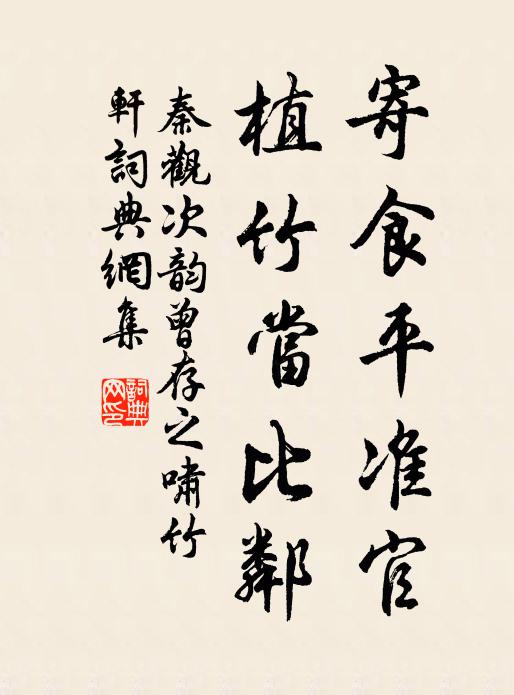 寄食平准官
植竹當比鄰
秦觀次韵曾存之嘯竹
軒詞典網集
詞典網印